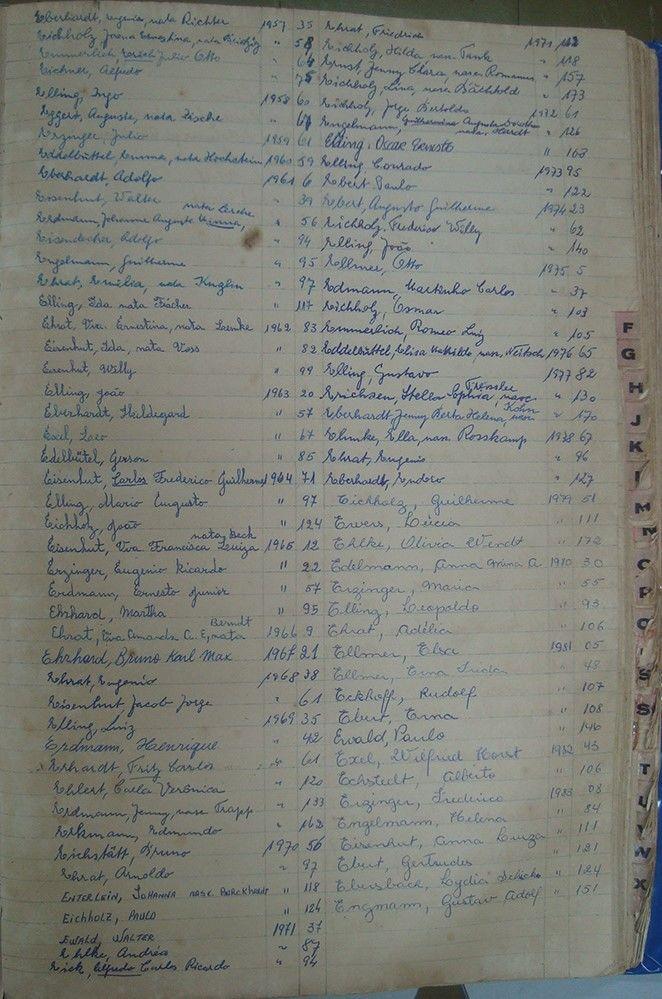 Eberhardt, Eugenia, nata Richter 1957 35
Eichholz, Joana Ernestina, nata " 58
Emmerlich, Erich Julio Otto " 64
Eichner, Alfredo " 75
Elling, Ingo 1958 60
Eggert, Auguste, nata Tische " 67
Erzinger, Julio 1959 61
Eddelbüttel Emma, nata Hochstein 1960 59
Eberhardt, Adolfo 1961 6
Eisenhut, Walter " 39
Erdmann, Johanne Auguste Minna, nata Lerche " 56
Eisendecher, Adolfo " 94
Engelmann, Guilherme " 95
Ehrat, Emilia, nata Kunzlin " 97
Elling, Ida nata Fischer " 117
Ehrat, Vva. Ernestina, nata Laemke 1962 83
Eisenhut, Ida, nata Voss " 82
Eisenhut, Willy " 99
Elling, João 1963 20
Eberhardt, Hildegard " 57
Exel, Lazo " 67
Edelbütel, Gerson " 85
Eisenhut, Carlos Frederico Guilherme 1964 71
Elling, Mario Eugusto " 97
Eichholz, João " 124
Eisenhut, Vva Francisca Luiza nata Beck 1965 12
Erzinger, Eugenio Ricardo " 22
Erdmann, Ernesto Junior " 57
Ehrhard, Martha " 95
Ehrat, Vva Amanda C. E, nata Berndt 1966 9
Ehrhard, Bruno Karl Max 1967 21
Ehrat, Eugenio 1968 38
Eisenhut, Jacob Jorge " 61
Elling, Luiz 1969 35
Erdmann, Henrique " 42
Erhardt, Fritz Carlos " 61
Ehlert, Carla Verônica " 120
Erdmann, Jenny, nasc Trapp " 133
Erthmann, Edmundo " 162
Eichstätt, Bruno 1970 56
Ehrat, Arnoldo " 97
Enterlein, Johanna nasc. Burckhardt " 118
Eichholz, Paulo " 124
Ewald, Walter 1971 37
Ehlke, Andréas " 87
Eick, Alfredo Carlos Ricardo " 94
Ehrat, Friedrich 1971 112
Eichholz, Hilda, nasc. Tank " 118
Ernst, Jenny Clara, nasc. Romanus " 157
Eichholz, Lina, nasc. Bächtold " 173
Eichholz, Jorge Bertoldo 1972 61
Engelmann, Guilhermina Augusta Dorothea nata, Hardt " 126
Elling, Oscar Ernesto " 163
Elling Conrado 1973 95
Ebert Paulo " 122
Ebert, Augusto Guilherme 1974 23
Eichholz, Frederico Willy " 62
Elling, João " 140
Ellmer, Otto 1975 5
Edmann Martinho Carlos " 37
Eichholz, Osmar " 103
Emmerlich, Romeo Luiz " 105
Eddelbüttel, Elisa Mathilde, nasc. Nertsch 1976 65
Elling, Gustavo 1977 82
Erichsen, Stella Sophia, nasc Tressler " 130
Eberhardt, Jenny Berta Helena, nasc Kohn " 170
Ehmke, Ella, nasc. Rosskamp 1978 67
Ehrat, Eugenio " 96
Eberhardt, Endoro " 127
Eichholz, Guilherme 1979 51
Ewers, Lúcia " 111
Ehlke, Olivia Wendt " 172
Edelmann, Anna Minna A. 1980 30
Erzinger, Maria " 55
Elling, Leopoldo " 93
Ehrat, Adélia " 106
Ellmer, Elsa 1981 05
Ellmer, Erna Frida " 48
Eckhoff, Rudolf " 107
Ebert, Erna " 108
Ewald, Paulo " 146
Exel, Wilfried Horst 1982 43
Echstedt, Alberto " 106
Erzinger, Frederico 1983 08
Engelmann, Helena " 84
Eisenhut, Anna Luiza " 111
Ebert, Gertrudes " 121
Ebersback, Lydia " 124
Engmann, Gustav Adolf " 151
F
G
H
J
K
I
M
N
O
P
Q
S
S
T
U
W
X